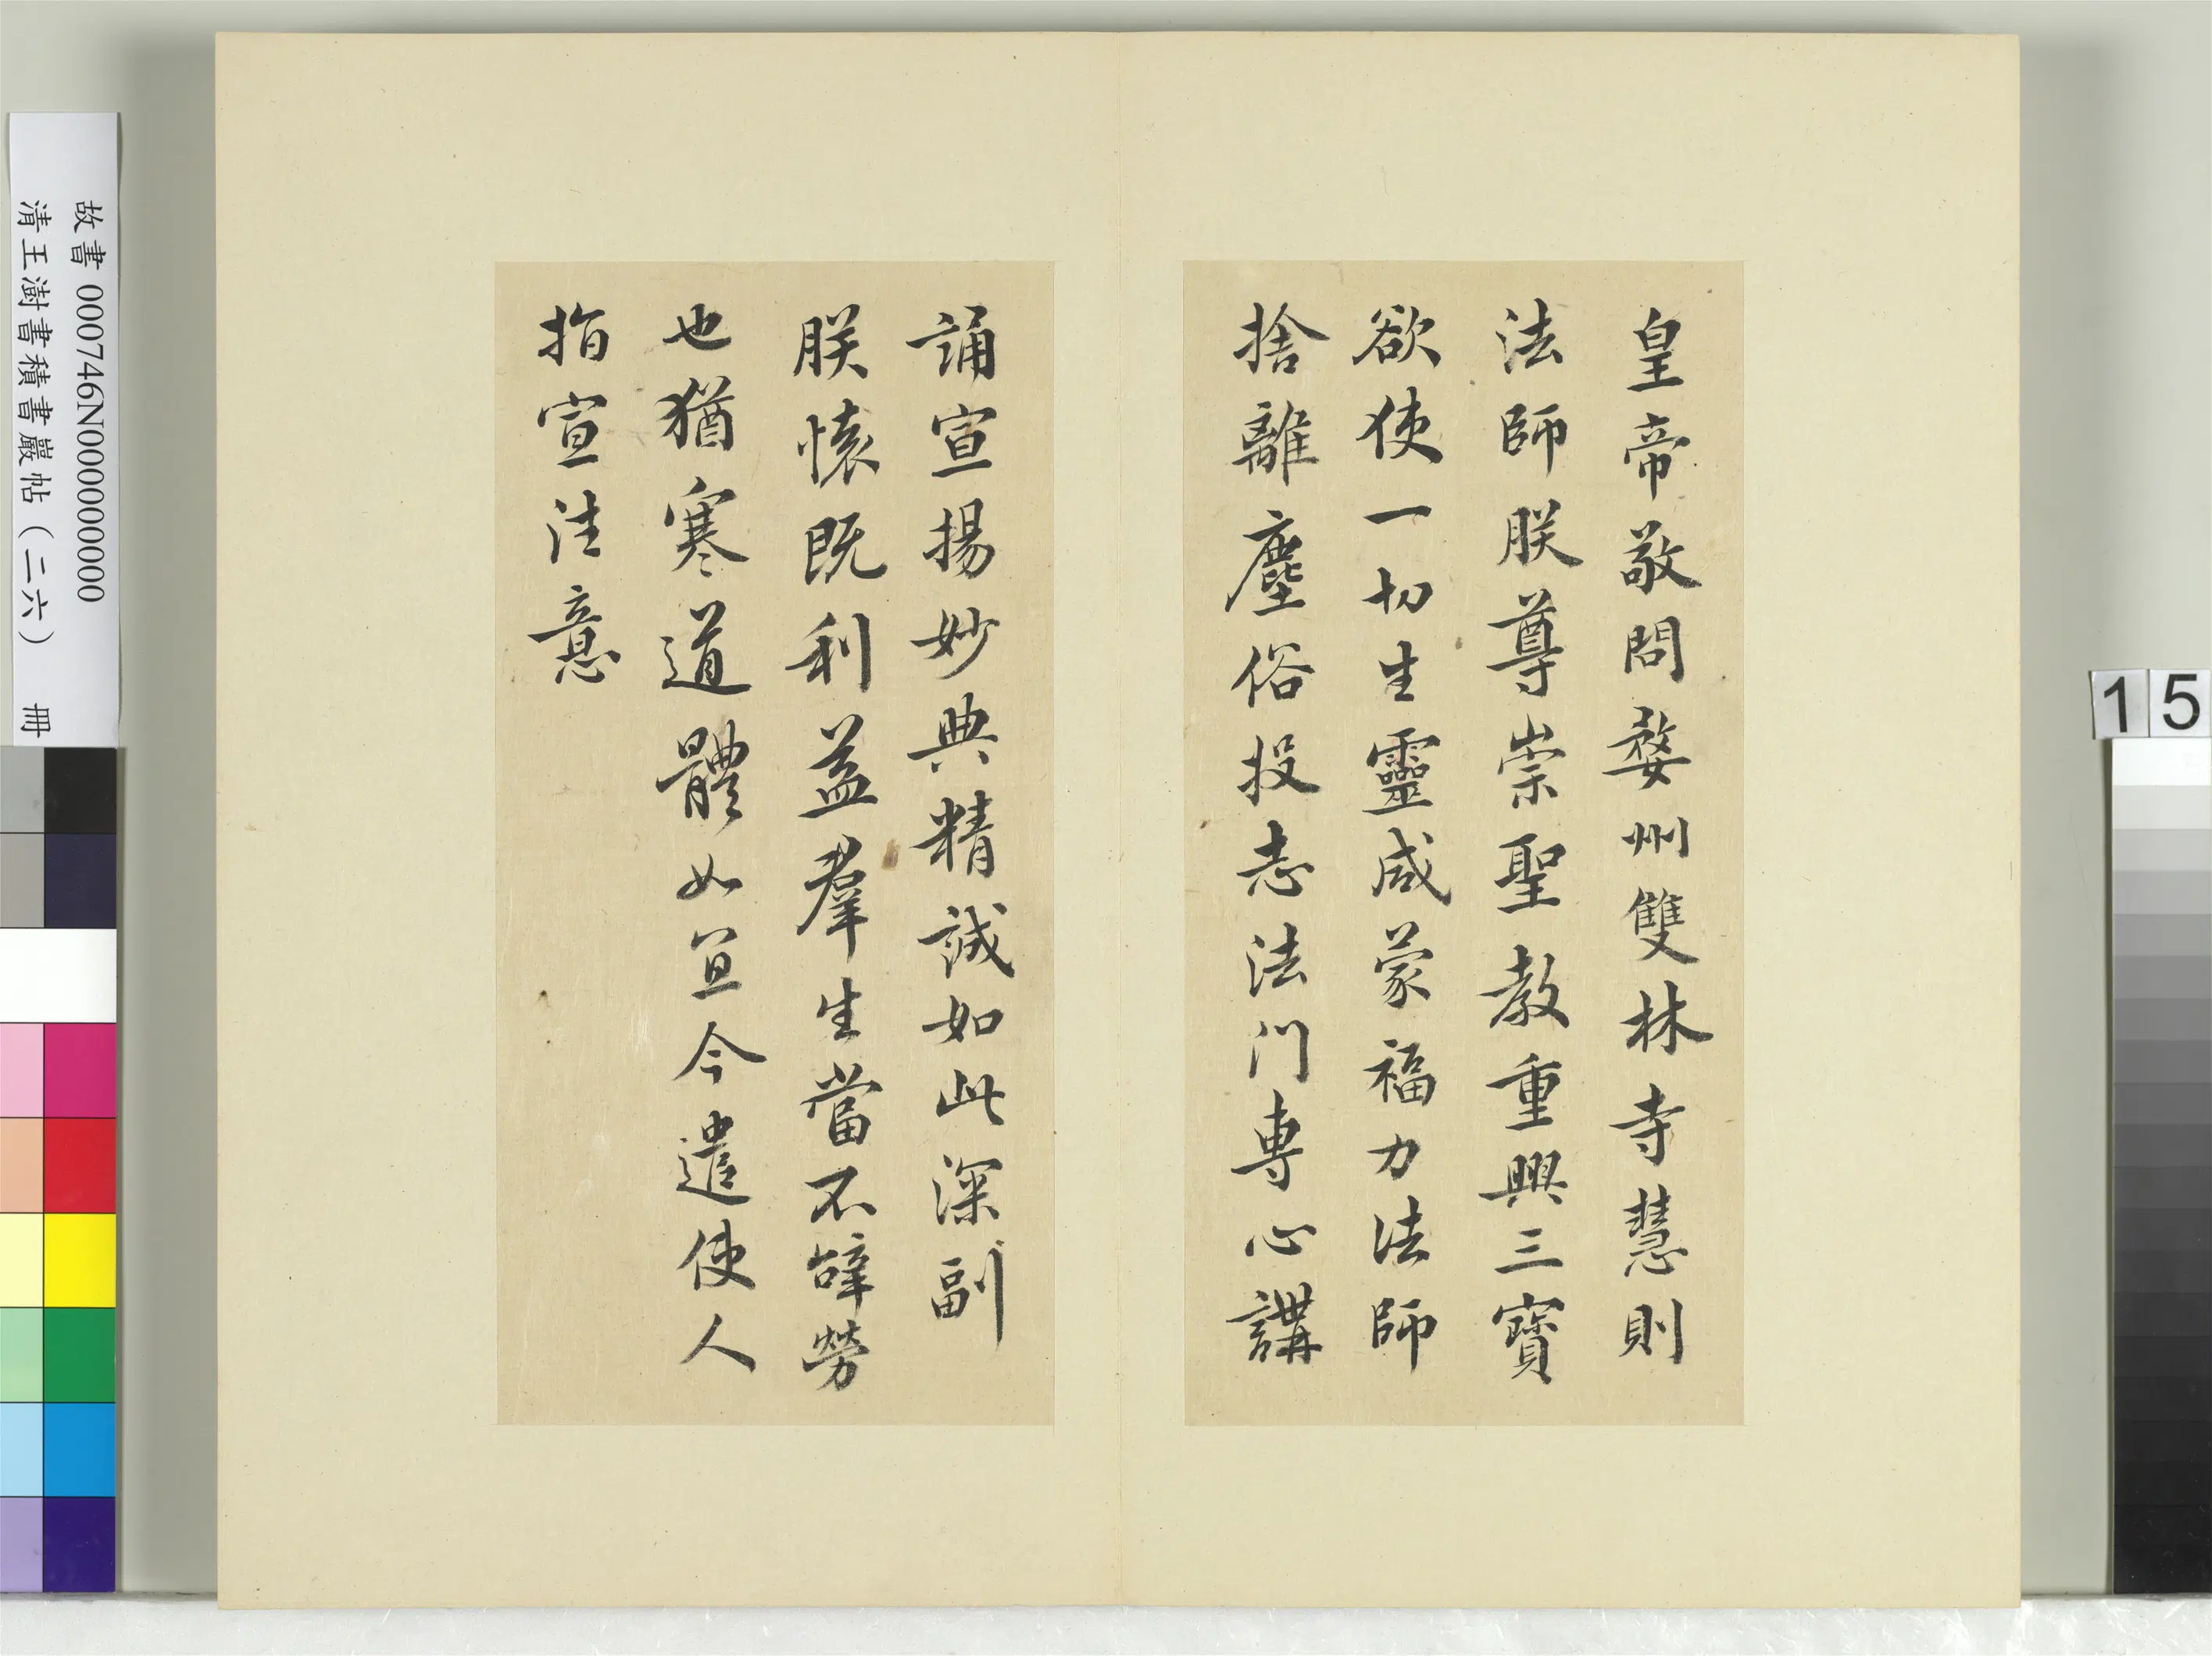 皇帝敬問婺州雙林寺慧則
法師朕尊崇聖教重興三寶
欲使一切生靈咸蒙福力法師
捨離塵俗投志法門專心講
誦宣揚妙典精誠如此深副
朕懷既利益羣生當不辭勞
也猶寒道體如宜今遣使人
指宣往意
故書 000746N000000000
清王澍書積書巖帖(二六) 冊
15